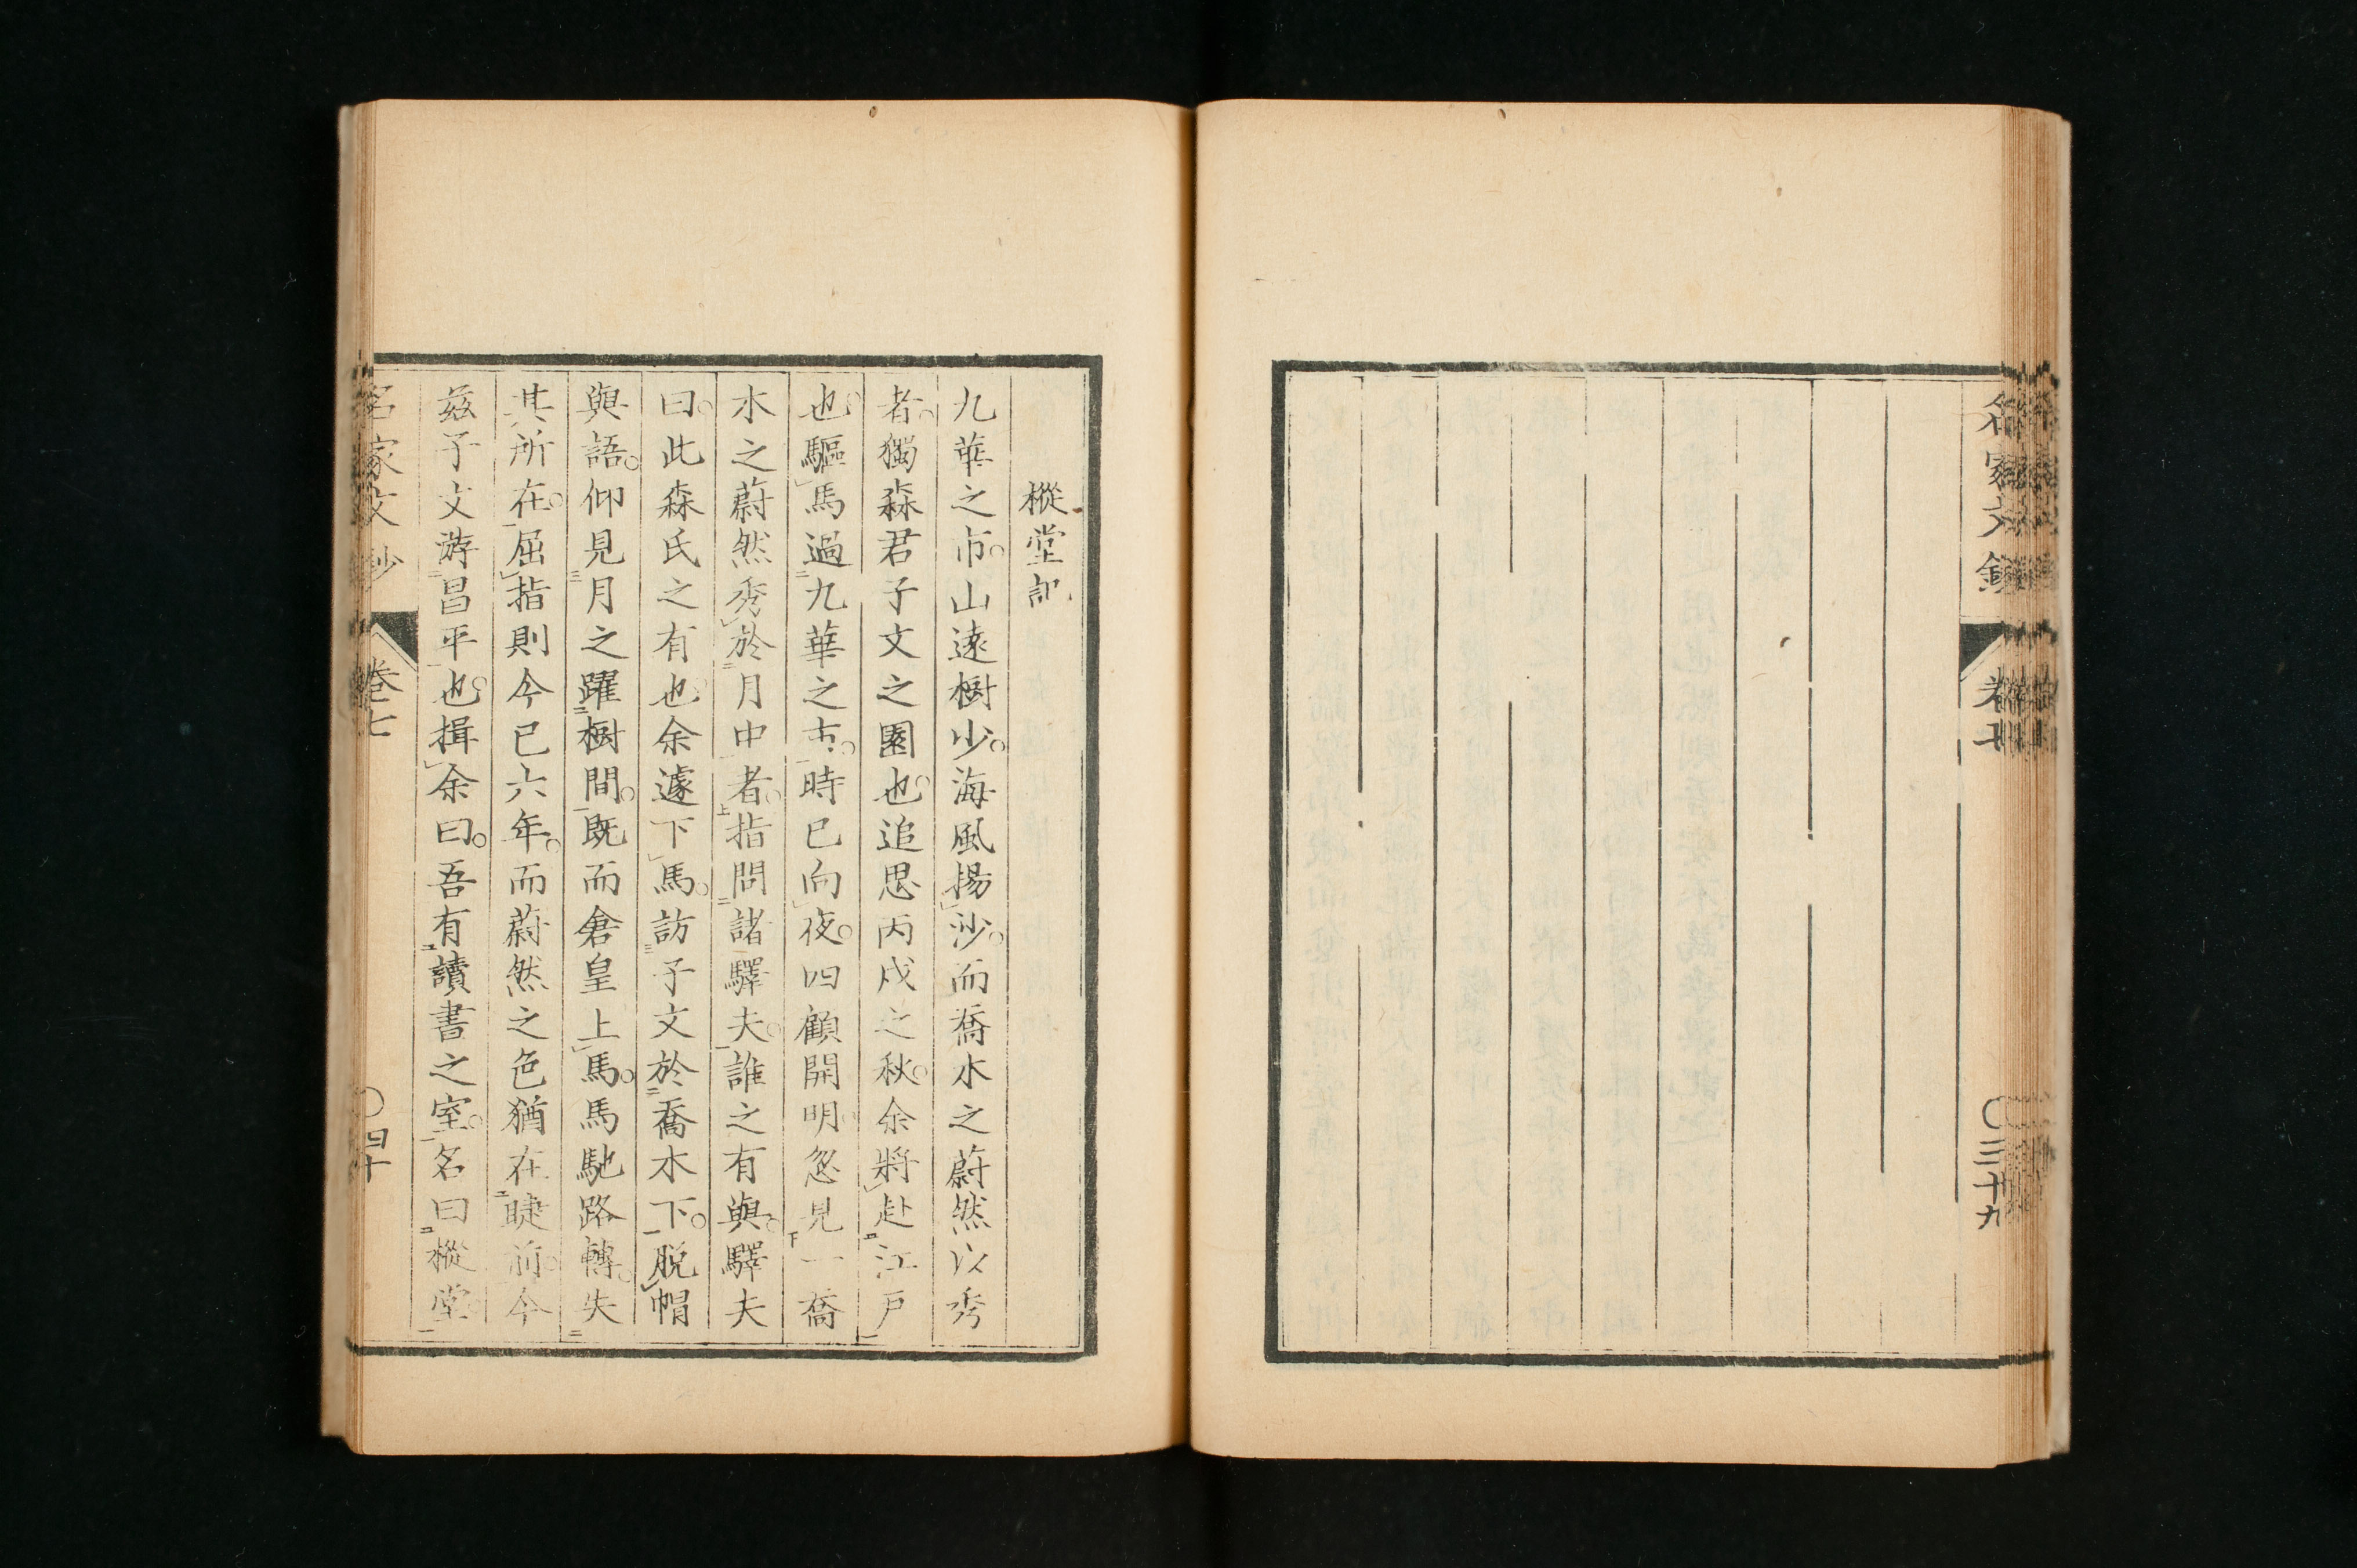 名家文鈔
卷七
〇三十九
樅堂記
九華之市。山遠樹少。海風揚沙。而喬木之蔚然以秀
者。獨森君子文之園也。追思丙戌之秋。余將赴江戶
也。驅馬過九華之市。時已向夜。四顧開明。忽見一喬
木之蔚然秀於月中者。指問諸驛夫。誰之有與。驛夫
曰。此森氏之有也。余遽下馬。訪子文於喬木下。脫帽
與語。仰見月之躍樹間。既而倉皇上馬。馬馳路轉。失
其所在。屈指則今已六年。而蔚然之色猶在睫前。今
茲子文游昌平也。揖余曰。吾有讀書之室。名曰樅堂。
名家文鈔
卷七
〇四十